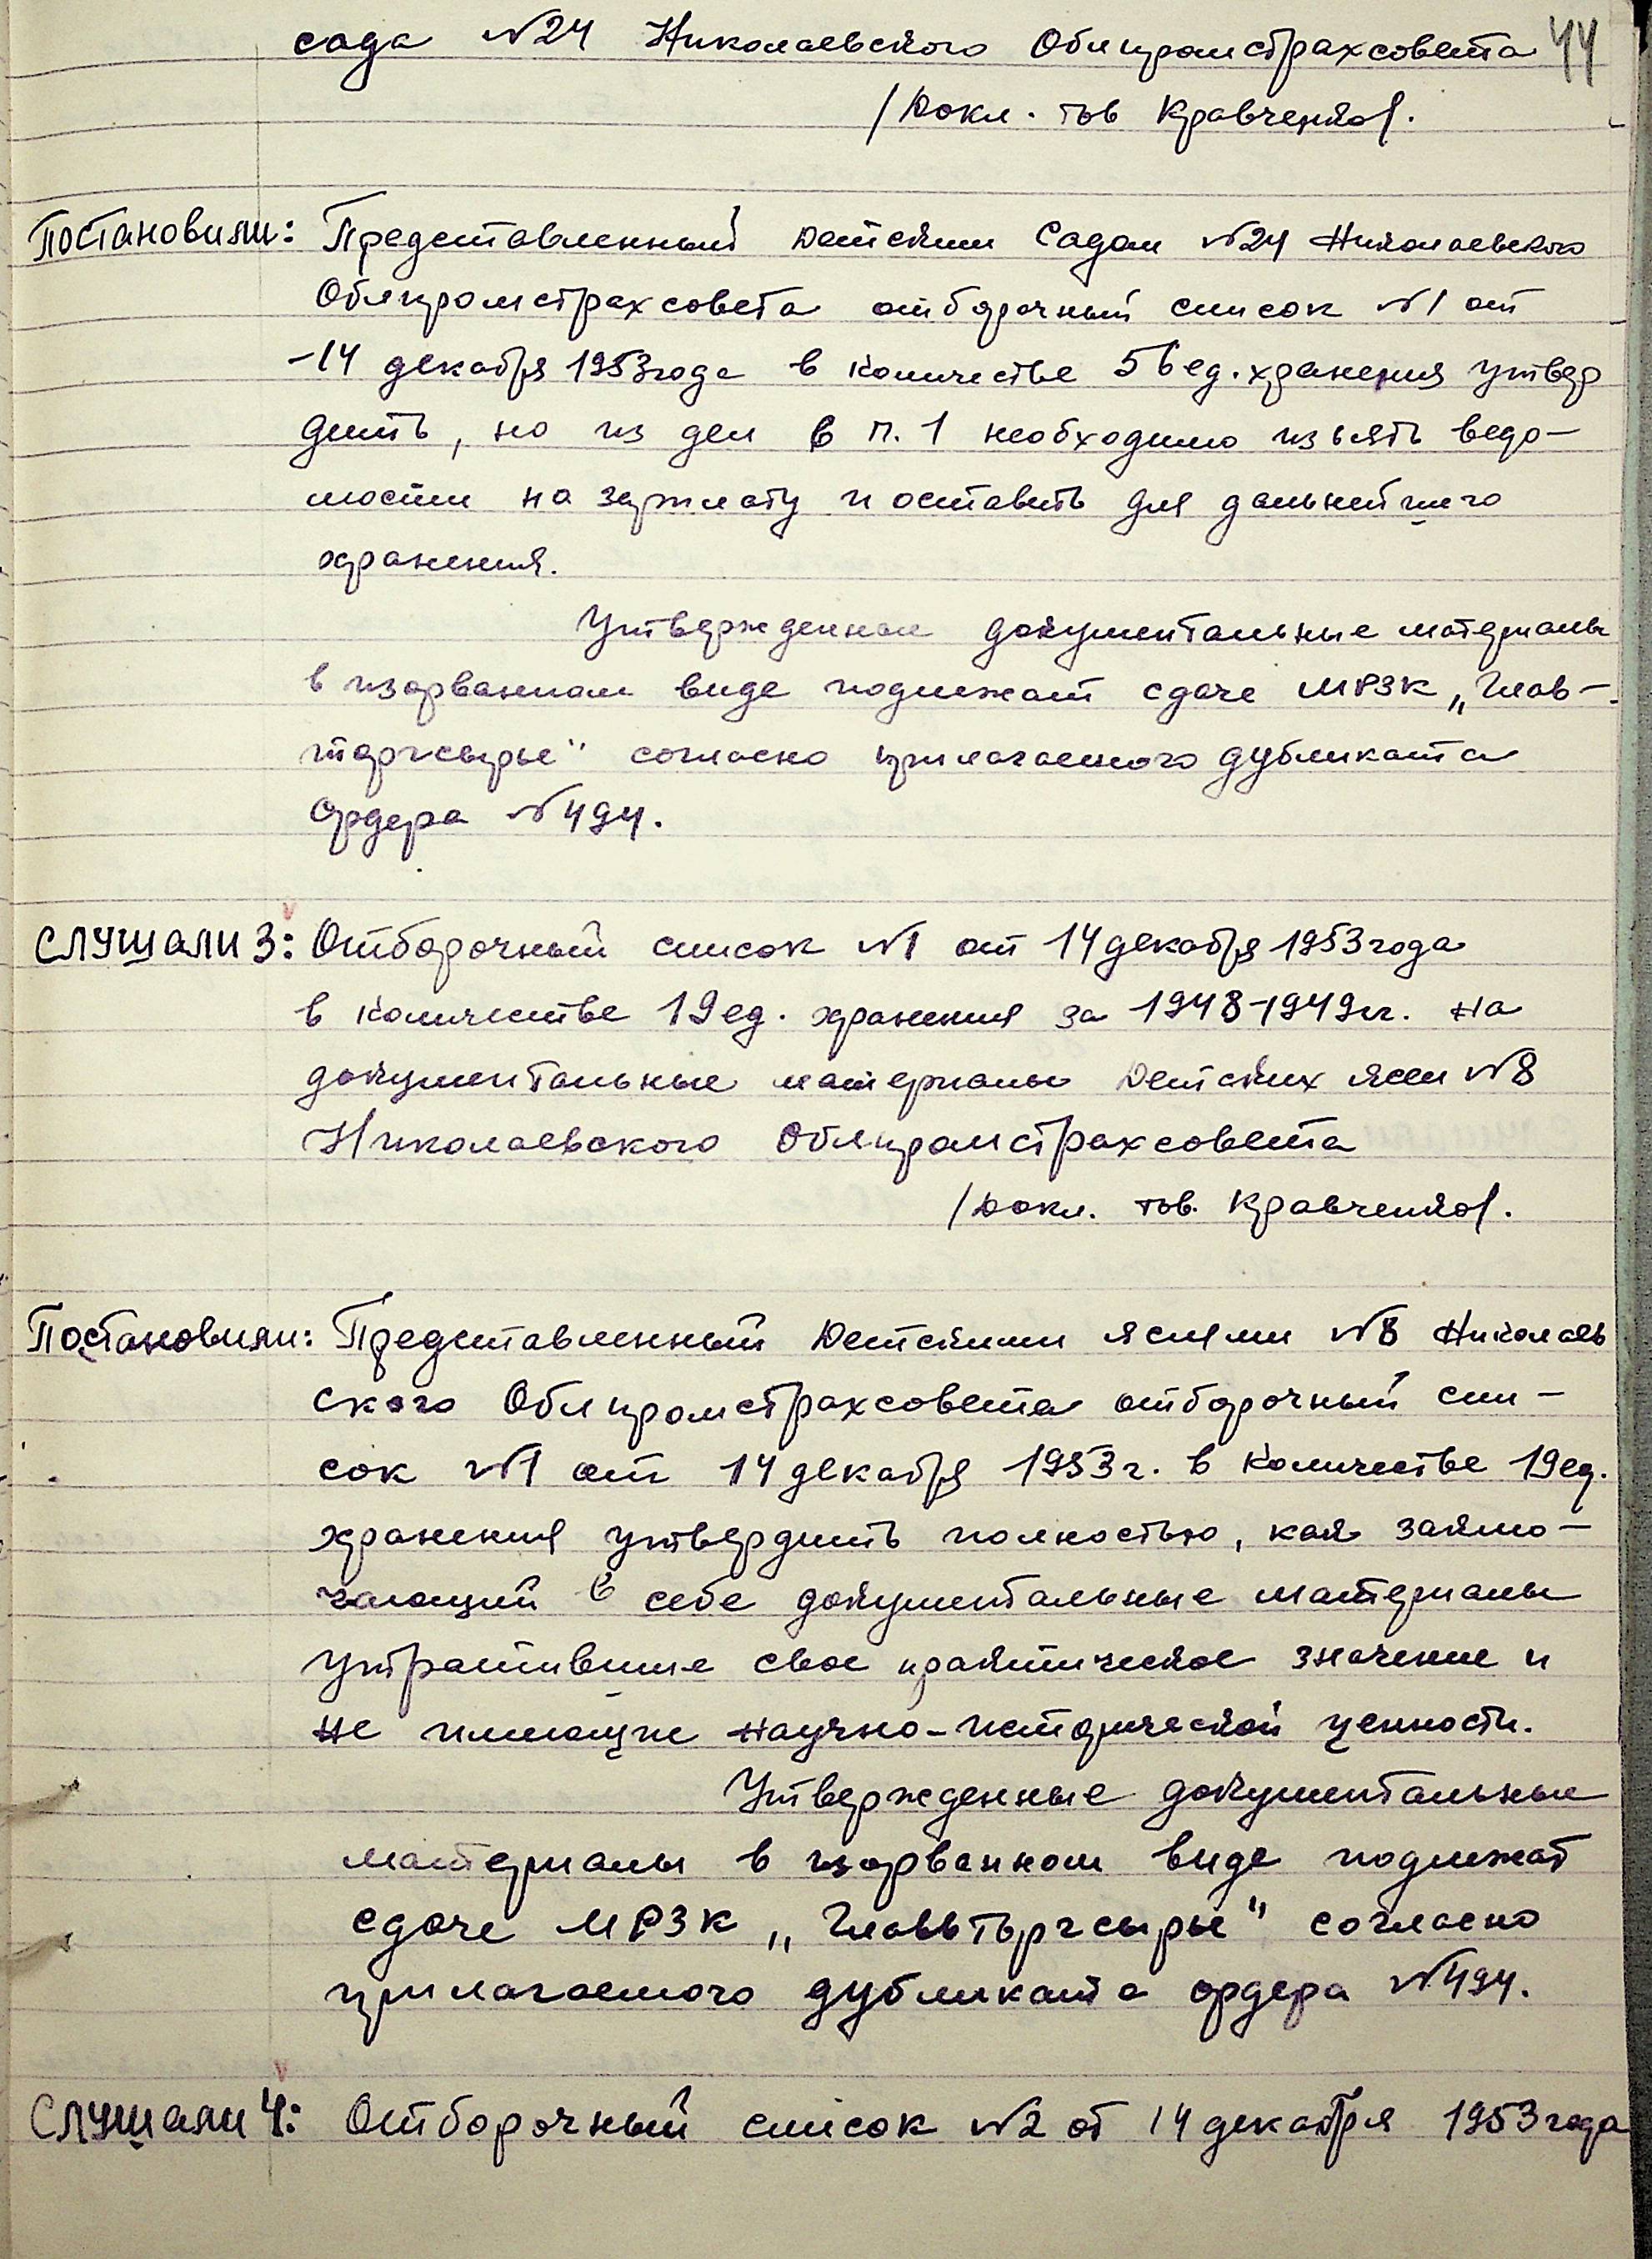 сада №24 Николаевского Облпромстрахсовета 44
/Докл. тов Кравченко/.
Постановили: Представленный Детским Садом №24 Николаевского
Облпромстрахсовета отборочный список №1 от
14 декабря 1953 года в количестве 56 ед. хранения утвер
дить, но из дел в п. 1 необходимо изъять ведо-
мости на зарплату и оставить для дальнейшего
хранения.
Утвержденные документальные материалы
в изорванном виде подлежат сдаче МРЗК „Глав-
торгсырье" согласно прилагаемого дубликата
ордера №494.
Слушали 3: Отборочный список №1 от 14 декабря 1953 года
в количестве 19 ед. хранения за 1948-1949 гг. на
документальные материалы Детских ясел №8
Николаевского Облпромстрахсовета
/Докл. тов. Кравченко/.
Постановили: Представленный Детскими яслями №8 Николаев
ского Облпромстрахсовета отборочный спи-
сок №1 от 14 декабря 1953 г. в количестве 19 ед.
хранения утвердить полностью, как заклю-
чающий в себе документальные материалы
утратившие свое практическое значение и
не имеющие научно-исторической ценности.
Утвержденные документальные
материалы в изорванном виде подлежат
сдаче МРЗК „Главвторгсырьё" согласно
прилагаемого дубликата ордера №494.
Слушали 4: Отборочный список №2 от 14 декабря 1953 года